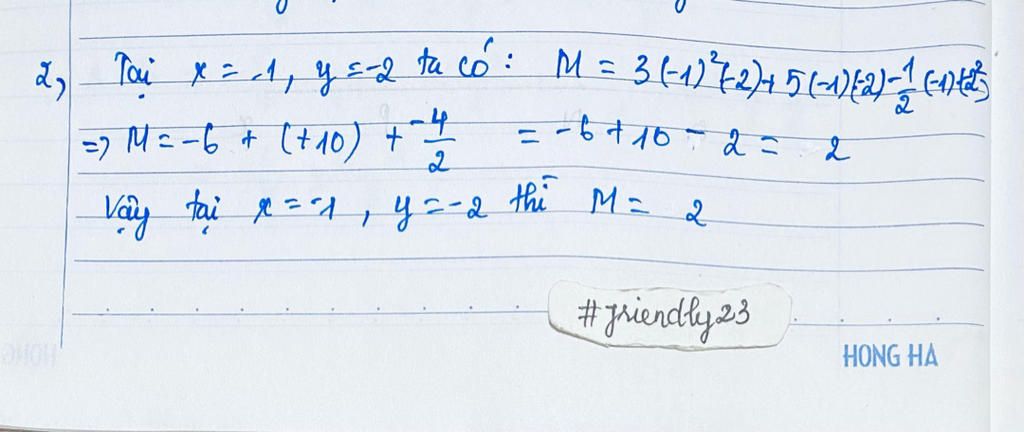 2, Tại x = -1, y = -2 ta có: M = 3(-1)²(-2) + 5(-1)(-2) - 1/2 (-1)(-2)²
=> M = -6 + (+10) + -4/2 = -6 + 10 - 2 = 2
Vậy tại x = -1, y = -2 thì M = 2
#friendly23
HONG HA